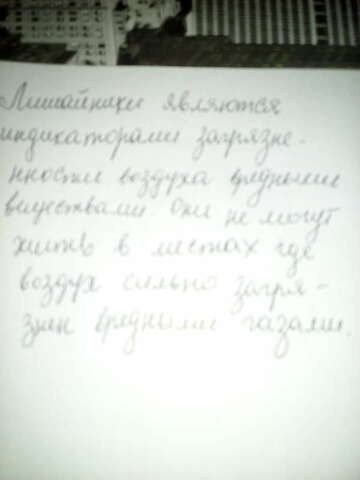 Лишайники являются
индикаторами загрязне-
нности воздуха вредными
веществами они не могут
жить в местах где
воздух сильно загря-
знен вредными газами.